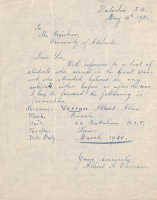 Waterloo, S.A.
May 10th 1931.
To
The Registrar,
University of Adelaide.
Dear Sir,
With reference to a list of
students who served in the Great War
and who attended lectures in any
subject either before or after the war
I beg to forward the following
information:
Surname: Vercan Albert Allan
Rank: Private
Unit: Battalion A.I.F.
Faculty:
Date: March 1920.
Yours sincerely,
Albert A.